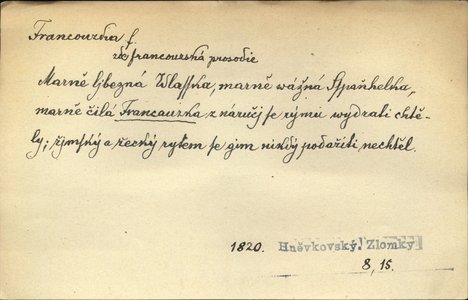 Francouzka f.
zde francouzská prosodie
Marně ljbezná Wlasska, marně wážná Sspaňhelka,
marně čilá Francauzka z náručj se rýmu wydrati chtě-
ly; řjmský a řecký rytem se gim nikdý podařiti nechtěl.
1820. Hněvkovský. Zlomky
8, 15.